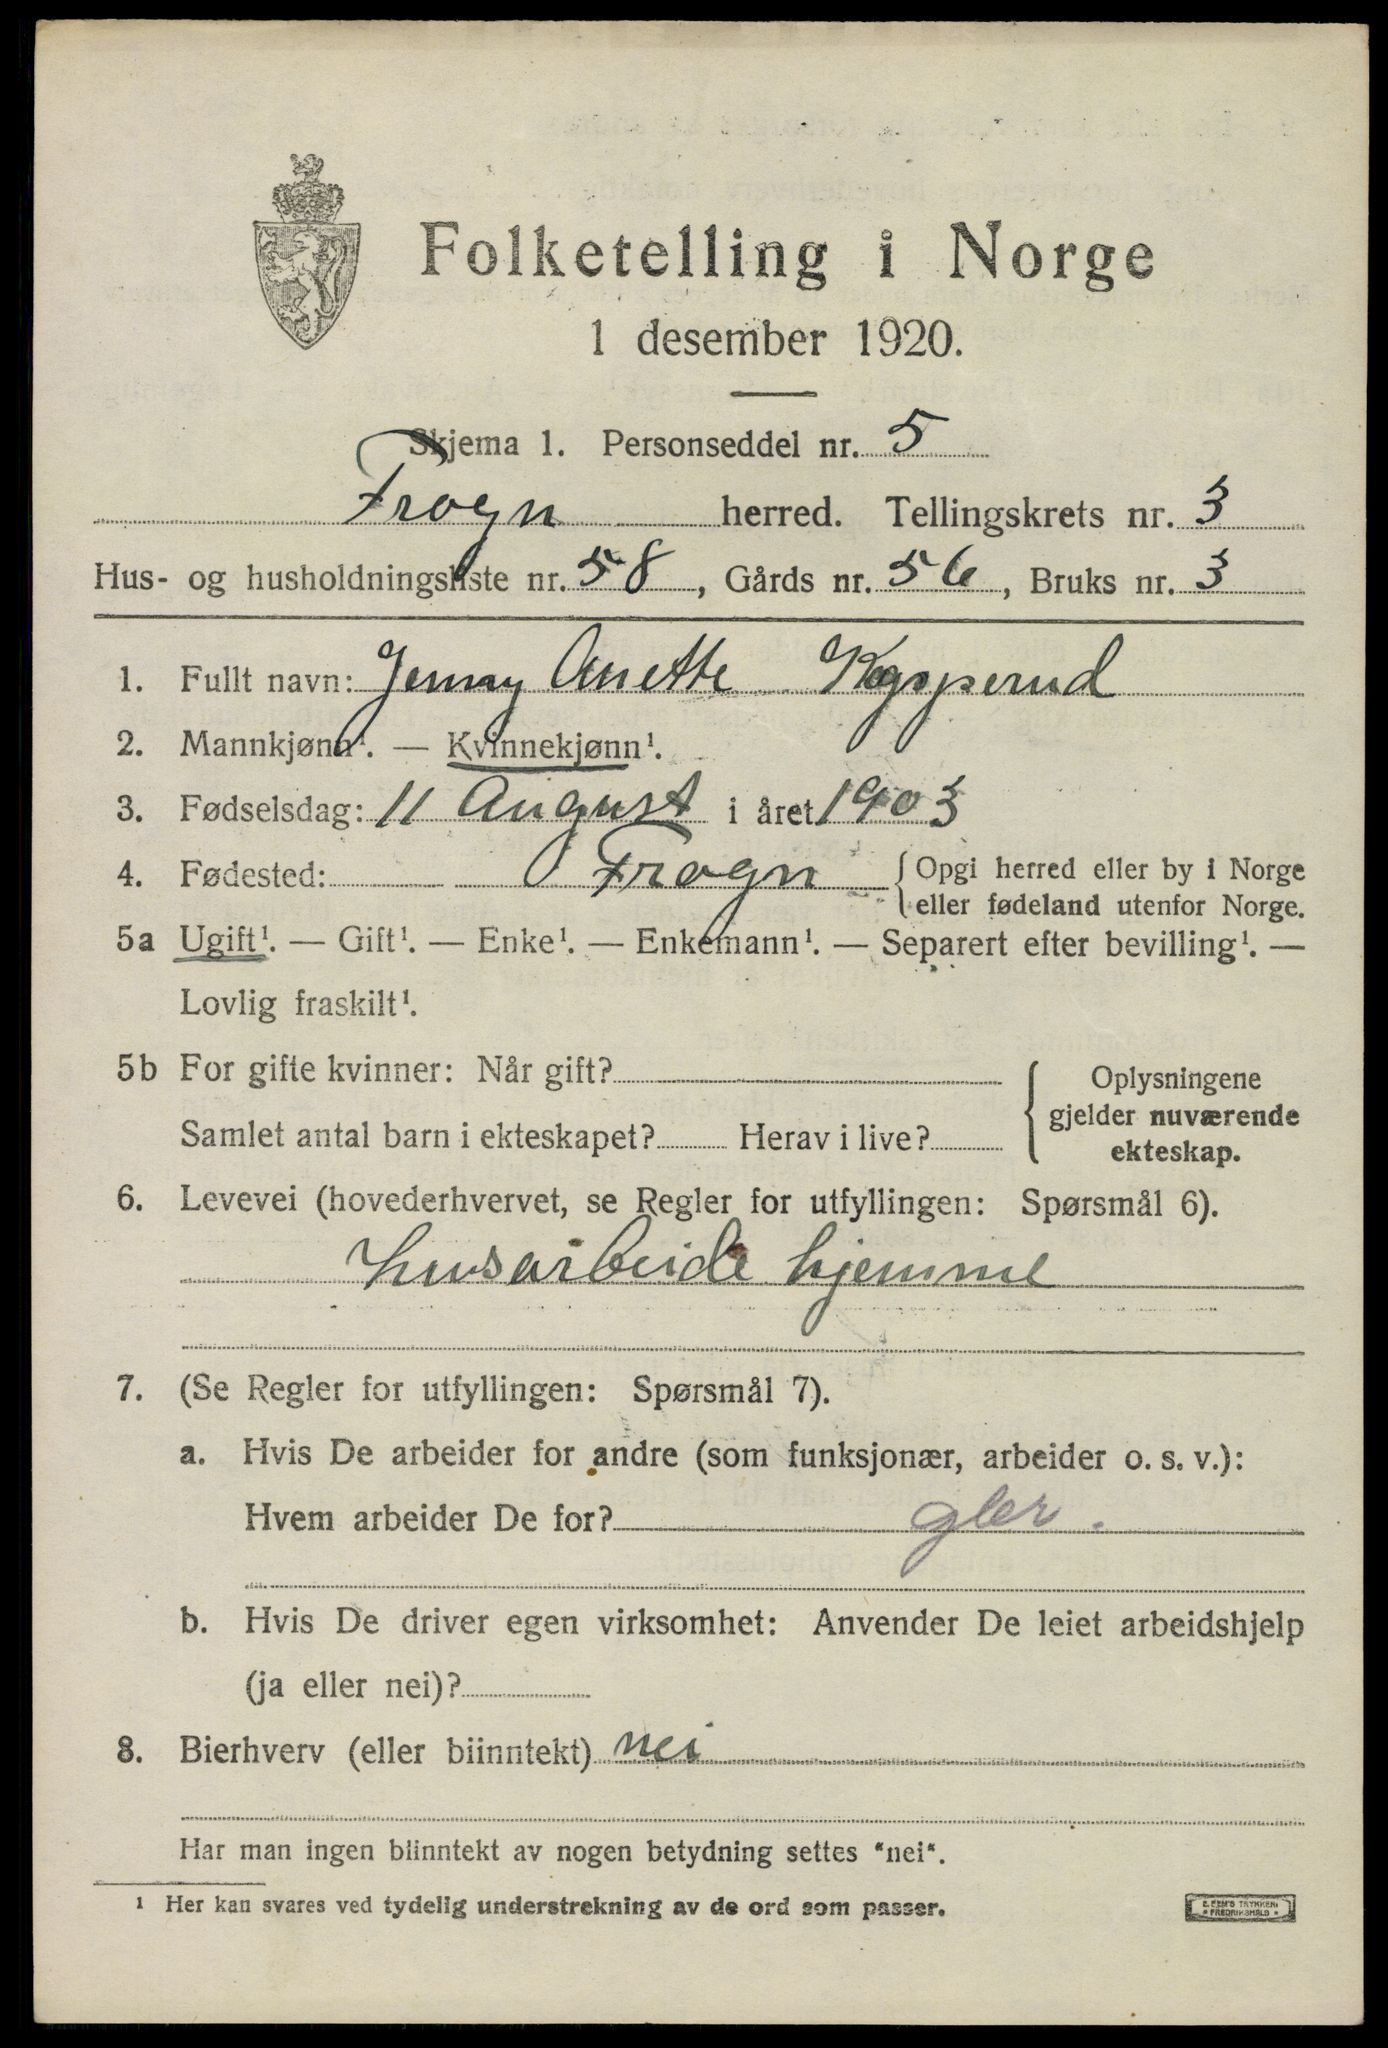 Folketelling i Norge
1 desember 1920.
Skjema 1. Personseddel nr. 5
Frogn herred. Tellingskrets nr. 3
Hus- og husholdningsliste nr. 58, Gårds nr. 56, Bruks nr. 3
1. Fullt navn: Jenny Anette Kopperud
2. Mannkjønn¹. — Kvinnekjønn¹.
3. Fødselsdag: 11 August i året 1903
4. Fødested: Frogn { Opgi herred eller by i Norge
eller fødeland utenfor Norge.
5a Ugift¹. — Gift¹. — Enke¹. — Enkemann¹. — Separert efter bevilling¹. —
Lovlig fraskilt¹.
5b For gifte kvinner: Når gift?
Samlet antal barn i ekteskapet? Herav i live?
{ Oplysningene
gjelder nuværende
ekteskap.
6. Levevei (hovederhvervet, se Regler for utfyllingen: Spørsmål 6).
husarbeide hjemme
7. (Se Regler for utfyllingen: Spørsmål 7).
a. Hvis De arbeider for andre (som funksjonær, arbeider o. s. v.):
Hvem arbeider De for?
b. Hvis De driver egen virksomhet: Anvender De leiet arbeidshjelp
(ja eller nei)?
8. Bierhverv (eller biinntekt) nei
Har man ingen biinntekt av nogen betydning settes "nei".
¹ Her kan svares ved tydelig understrekning av de ord som passer.